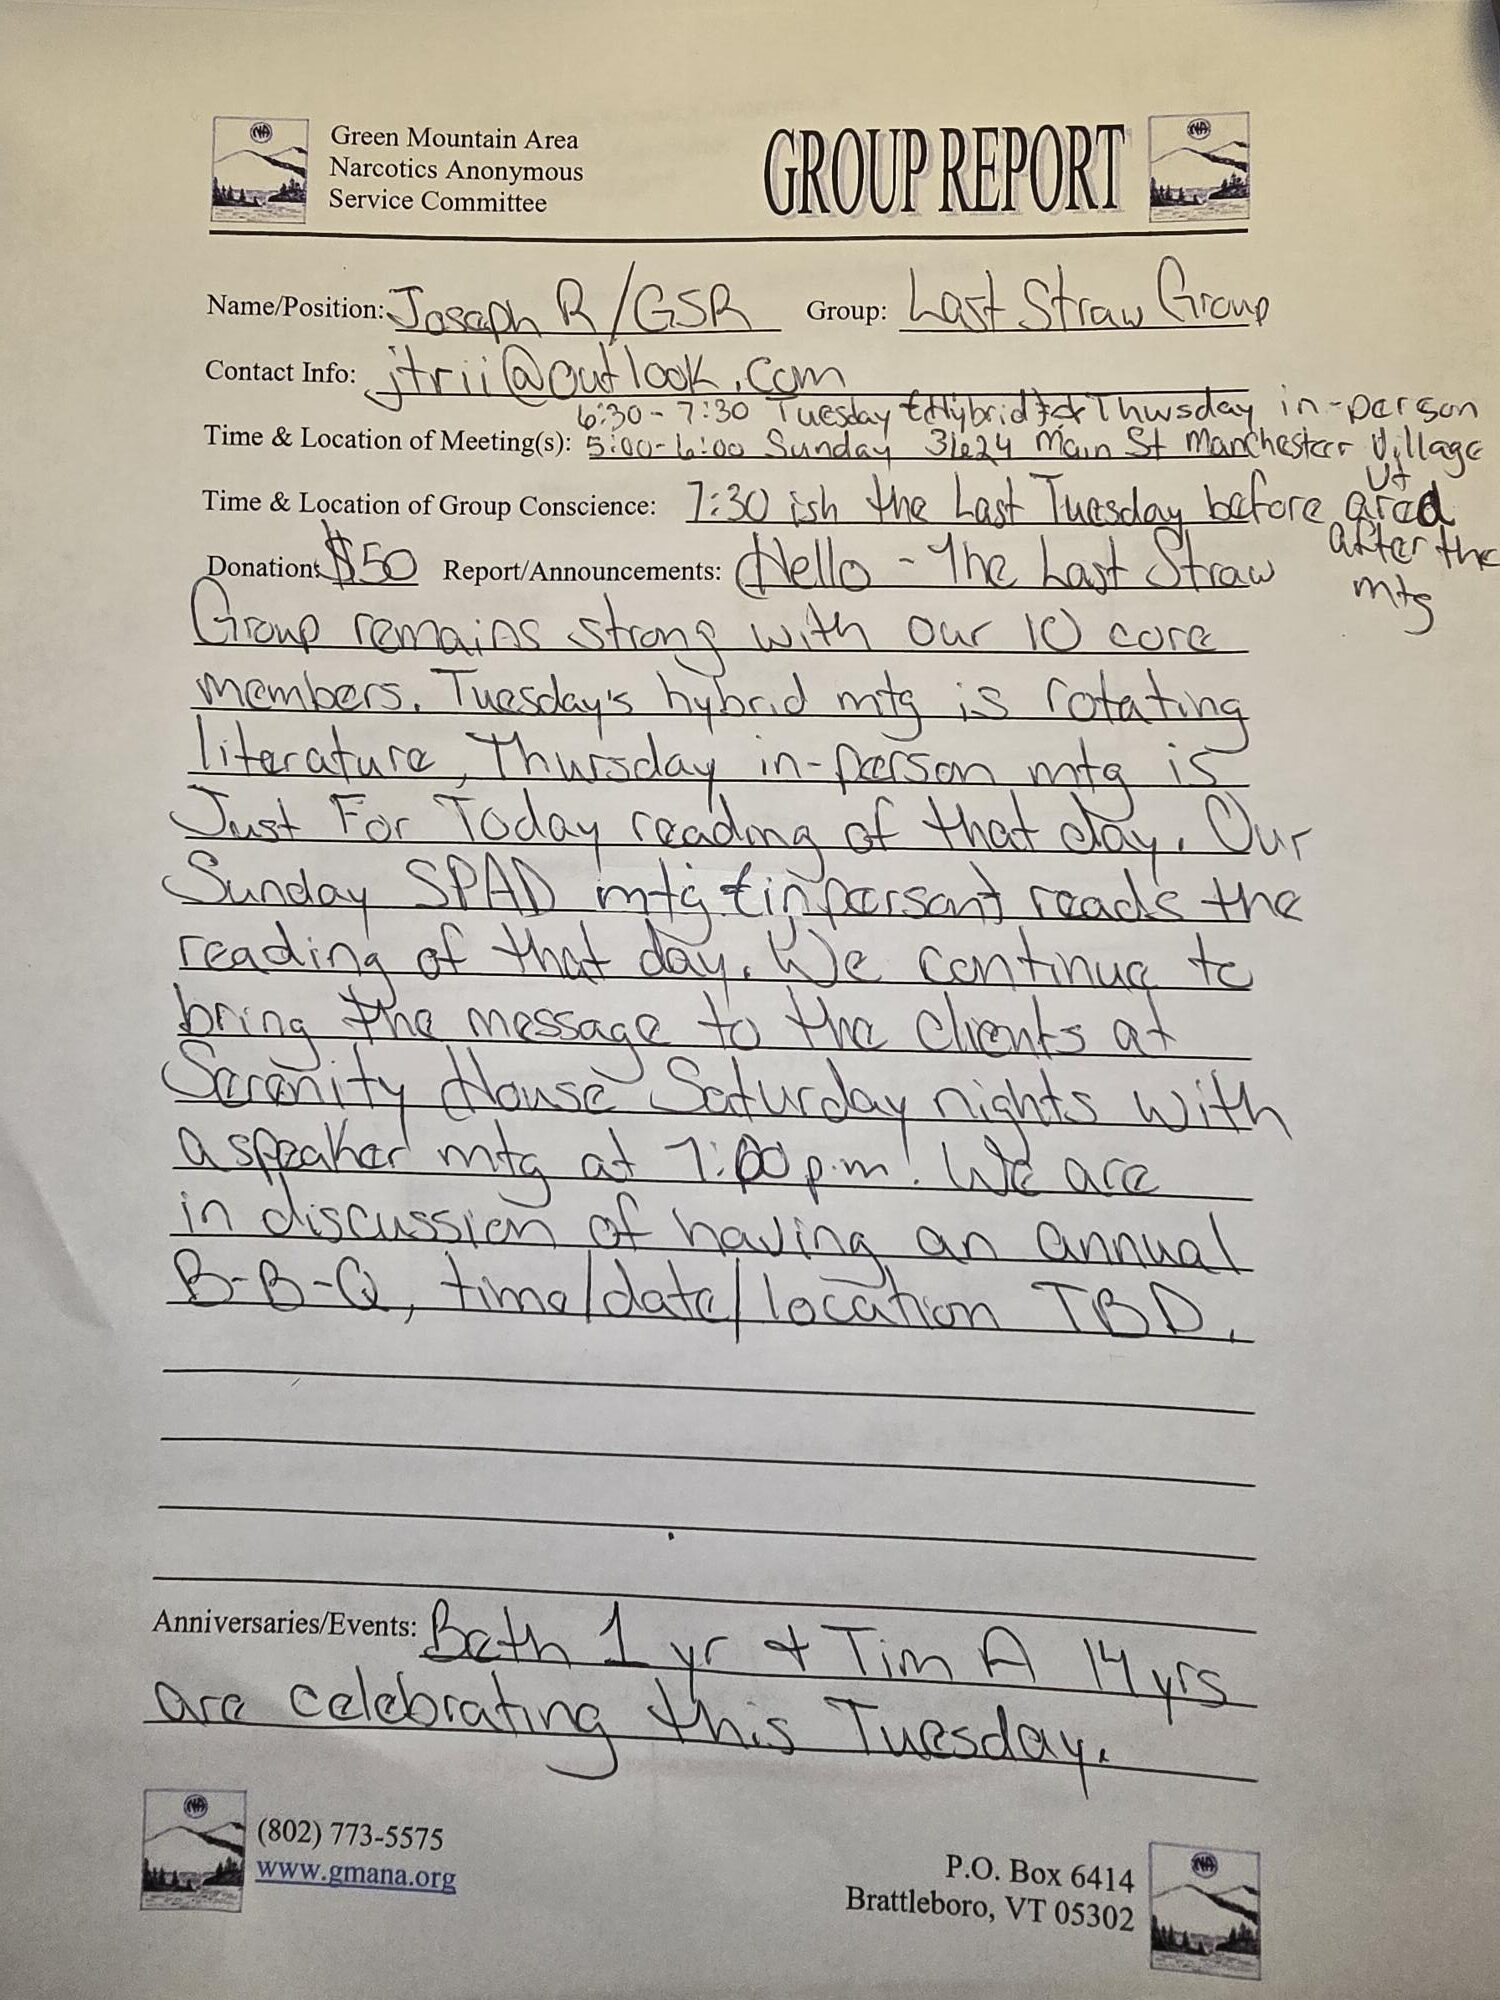 NA
Green Mountain Area
Narcotics Anonymous
Service Committee
GROUP REPORT
NA
Name/Position: Joseph R/GSR Group: Last Straw Group
Contact Info: jtrii@outlook.com
6:30-7:30 Tuesday {Hybrid} & Thursday in-person
Time & Location of Meeting(s): 5:00-6:00 Sunday 3624 Main St Manchester Village
Vt
Time & Location of Group Conscience: 7:30 ish the Last Tuesday before area
after the
mtg
Donation: $50 Report/Announcements: Hello - The Last Straw
Group remains strong with our 10 core
members. Tuesday's hybrid mtg is rotating
literature, Thursday in-person mtg is
Just For Today reading of that day. Our
Sunday SPAD mtg {inperson} reads the
reading of that day. We continue to
bring the message to the clients at
Serenity House Saturday nights with
a speaker mtg at 7:00 p.m! We are
in discussion of having an annual
B-B-Q, time/date/location TBD.
Anniversaries/Events: Beth 1 yr & Tim A 14 yrs
are celebrating this Tuesday.
NA
(802) 773-5575
www.gmana.org
P.O. Box 6414
Brattleboro, VT 05302
NA